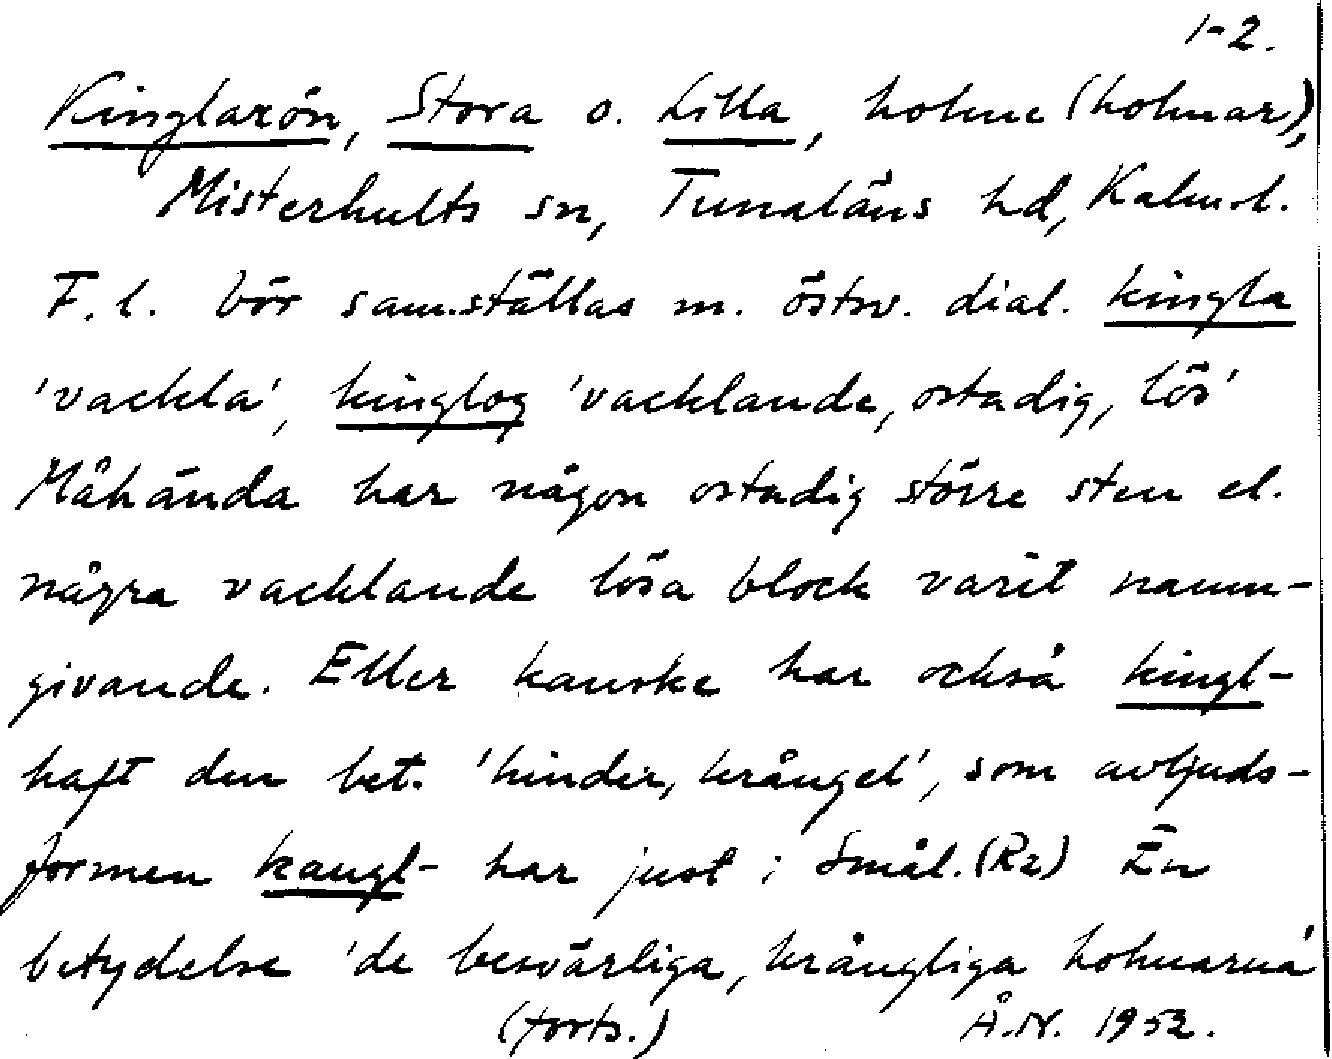 1-2.
Kinglarön, Stora o. Lilla, holme (holmar),
Misterhults sn, Tunaläns hd, Kalm.l.
F.l. bör sam.ställas m. östsv. dial. kingla
'vackla', kinglog 'vacklande, ostadig, lös'
Måhända har någon ostadig större sten el.
några vacklande lösa block varit namn-
givande. Eller kanske har också kingl-
haft den bet. 'hinder, krångel', som avljuds-
formen kangl- har just i Smål. (Rz) En
betydelse 'de besvärliga, krångliga holmarna'
(forts.) Å.N. 1952.